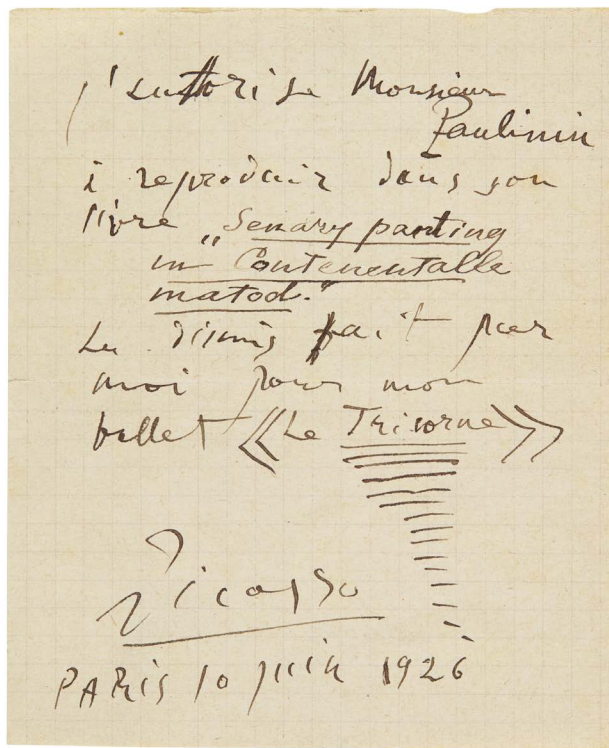 j'autorise Monsieur
Paulinin
à reproduir dans son
livre "Senary panting
in Contenentalle
matod."
Le disins fait par
moi pour mon
ballet «Le Tricorne»
Picasso
PARIS 10 juin 1926